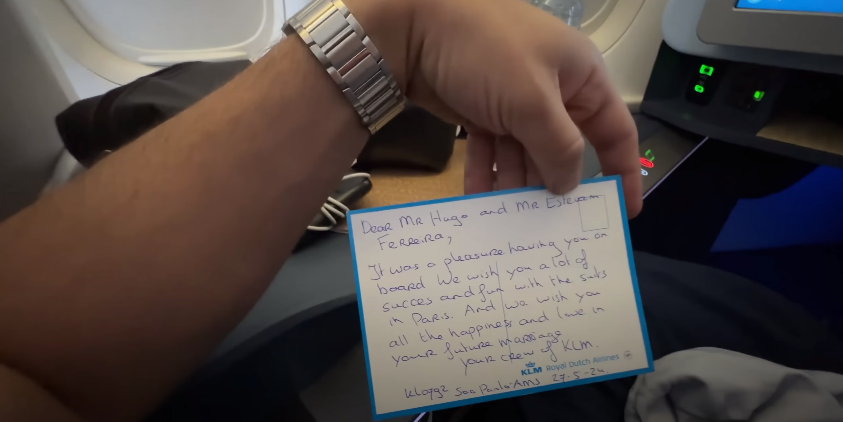 Dear Mr Hugo and Mr Estevam
Ferreira,
It was a pleasure having you on
board We wish you a lot of
succes and fun with the suits
in Paris. And we wish you
all the happiness and love in
your future marriage
your crew of KLM.
KLM Royal Dutch Airlines
Sao Paulo-AMS 27-5-24.